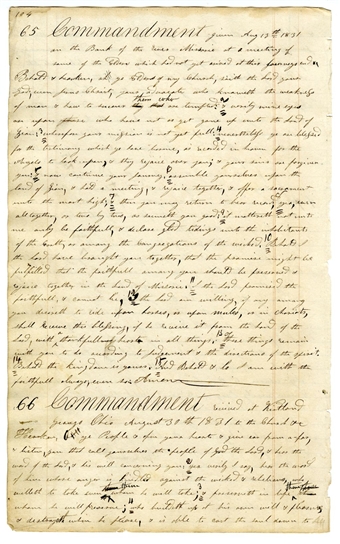 104
65 Commandment given Aug 13th 1831
on the Bank of the River Missorie at a meeting of
some of the Elders which had not yet arived at their journeys end
Behold & hearken, all ye Elders of my Church, saith the Lord your
God, even Jesus Christ, your advocate who knoweth the weakness
of man & how to succour them who are tempted; 2 & verily mine eyes
are upon those who have not as yet gone up unto the land of
Zion; 3 wherefore your mission is not yet full; 4 nevertheless ye are blessed
for the testimony which ye have borne, is recorded in heaven for the
Angels to look upon, & they rejoice over you; & your sins are forgiven
you; 5 & now continue your journey, assemble yourselves upon the
land of Zion, & hold a meeting, & rejoice together, & offer a sacrament
unto the most high; 7 & then you may return to bear record, yea, even
all together, or two by two, as seemeth you good; 8 it mattereth not unto
me only be faithfull, & declare glad tidings unto the inhabitants
of the Earth, or among the Congregations of the wicked; 10 Behold I
the Lord have brought you together, that the promise might be
fulfilled that the faithfull among you should be preserved &
rejoice together in the land of Missorie; 11 I the Lord promised the
faithfull, & cannot lie; 12 I the Lord am willing, if any among
you desireth to ride upon horses, or upon mules, or in chariots,
shall receive this blessing, if he receive it from the hand of the
Lord, with a thankfull heart in all things; 13 these things remain
with you to do according to judgement & the directions of the spirit;
14 Behold the kingdom is yours; 15 And Behold & lo I am with the
faithfull always, even so Amen
66 Commandment received at Kirtland
Geauga Ohio August 30th 1831 to the Church &c
Hearken, O ye People & open your heart & give ear from a far,
& listen you that call yourselves the people of God the Lord, & hear the
word of the Lord, & his will concerning you; 2 yea verily I say, hear the word
of him whose anger is kindled against the wicked & rebelious, who
willeth to take them whom he will take; 3 & preserveth in life them
whom he will preserve; 4 who buildeth up at his own will & pleasure,
& destroyeth when he please, & is able to cast the soul down to hell